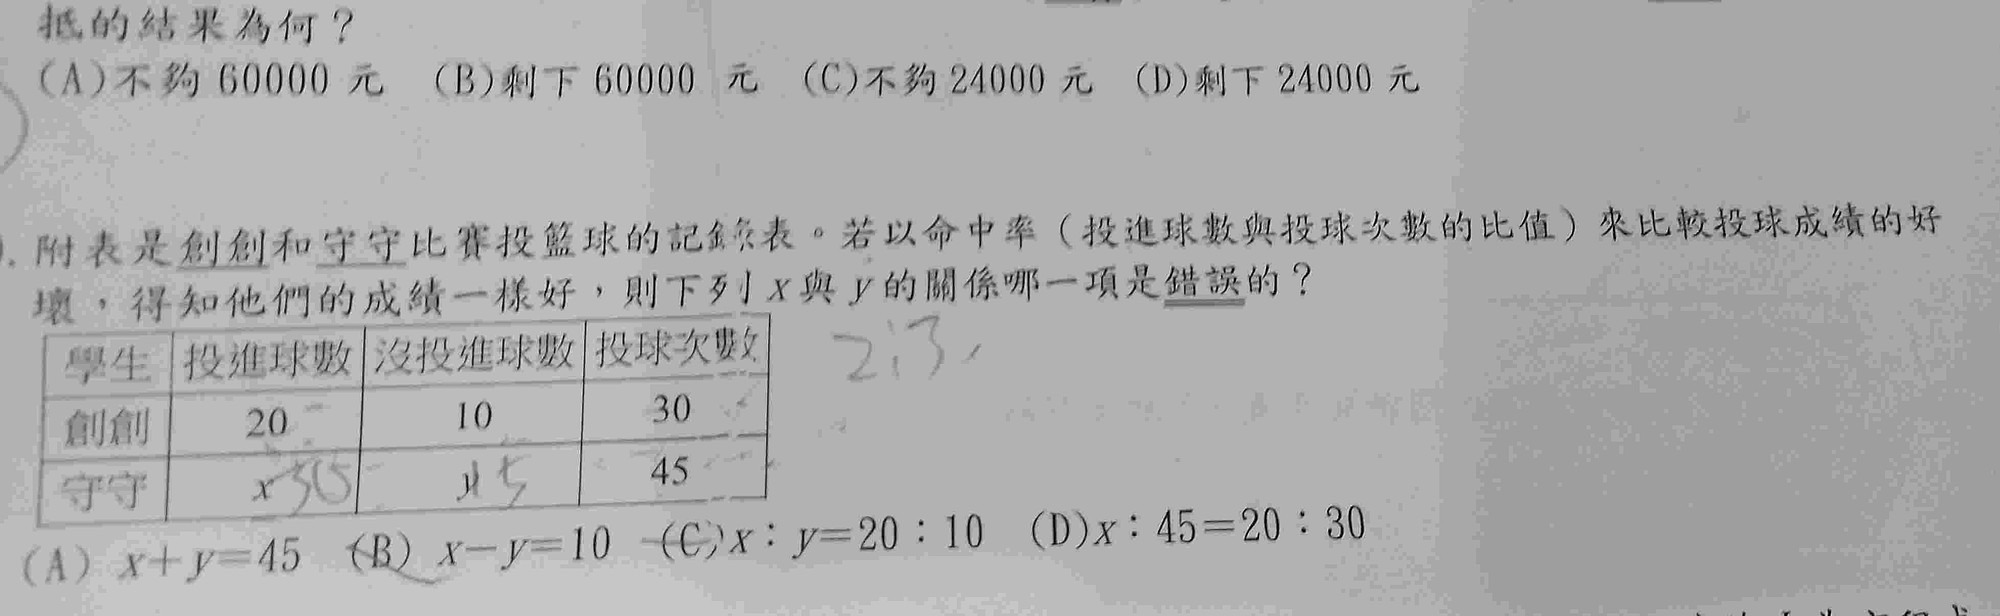 抵的結果為何？
(A)不夠 60000 元 (B)剩下 60000 元 (C)不夠 24000 元 (D)剩下 24000 元
附表是創創和守守比賽投籃球的記錄表。若以命中率（投進球數與投球次數的比值）來比較投球成績的好
壞，得知他們的成績一樣好，則下列 x 與 y 的關係哪一項是錯誤的？
學生 投進球數 沒投進球數 投球次數
2:3
創創 20 10 30
守守 x 30 y 15 45
(A) x+y=45 (B) x−y=10 (C) x：y=20：10 (D) x：45=20：30